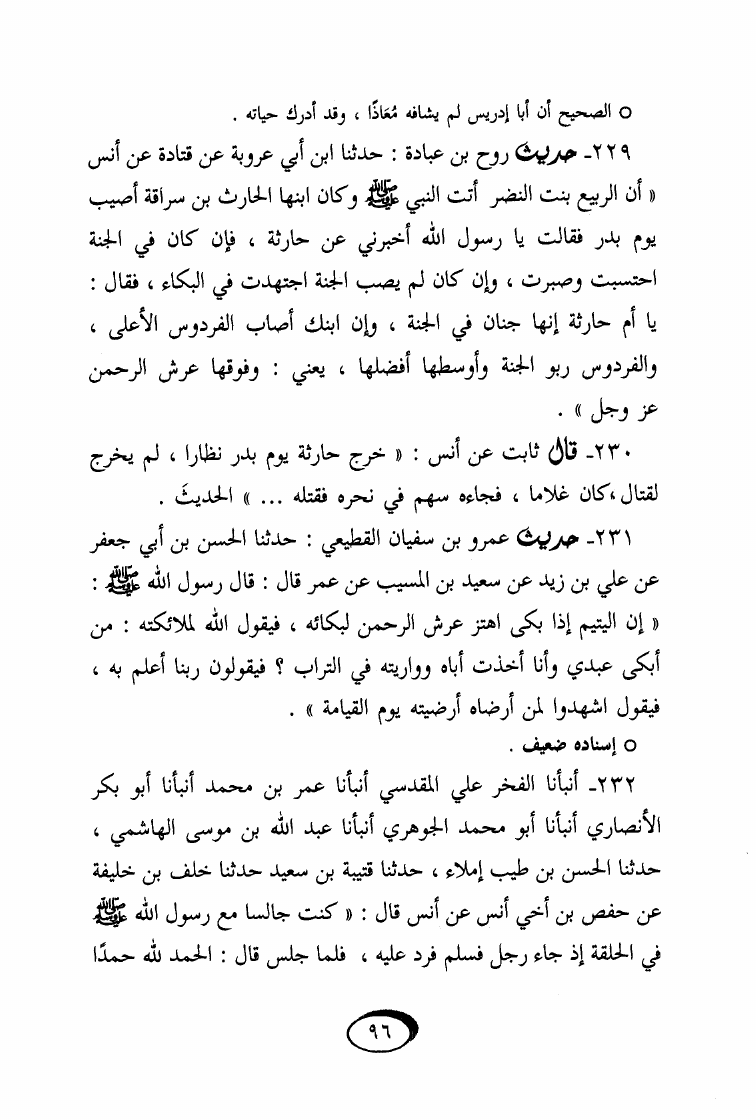 ○ الصحيح أن أبا إدريس لم يشافه مُعَاذًا ، وقد أدرك حياته .
٢٢٩- حديث روح بن عبادة : حدثنا ابن أبي عروبة عن قتادة عن أنس
« أن الربيع بنت النضر أتت النبي ﷺ وكان ابنها الحارث بن سراقة أصيب
يوم بدر فقالت يا رسول الله أخبرني عن حارثة ، فإن كان في الجنة
احتسبت وصبرت ، وإن كان لم يصب الجنة اجتهدت في البكاء ، فقال :
يا أم حارثة إنها جنان في الجنة ، وإن ابنك أصاب الفردوس الأعلى ،
والفردوس ربو الجنة وأوسطها أفضلها ، يعني : وفوقها عرش الرحمن
عز وجل » .
٢٣٠- قال ثابت عن أنس : « خرج حارثة يوم بدر نظارا ، لم يخرج
لقتال ، كان غلاما ، فجاءه سهم في نحره فقتله ... » الحديثَ .
٢٣١- حديث عمرو بن سفيان القطيعي : حدثنا الحسن بن أبي جعفر
عن علي بن زيد عن سعيد بن المسيب عن عمر قال : قال رسول الله ﷺ :
« إن اليتيم إذا بكى اهتز عرش الرحمن لبكائه ، فيقول الله لملائكته : من
أبكى عبدي وأنا أخذت أباه وواريته في التراب ؟ فيقولون ربنا أعلم به ،
فيقول اشهدوا لمن أرضاه أرضيته يوم القيامة » .
○ إسناده ضعيف .
٢٣٢- أنبأنا الفخر علي المقدسي أنبأنا عمر بن محمد أنبأنا أبو بكر
الأنصاري أنبأنا أبو محمد الجوهري أنبأنا عبد الله بن موسى الهاشمي ،
حدثنا الحسن بن طيب إملاء ، حدثنا قتيبة بن سعيد حدثنا خلف بن خليفة
عن حفص بن أخي أنس عن أنس قال : « كنت جالسا مع رسول الله ﷺ
في الحلقة إذ جاء رجل فسلم فرد عليه ، فلما جلس قال : الحمد لله حمدًا
٩٦